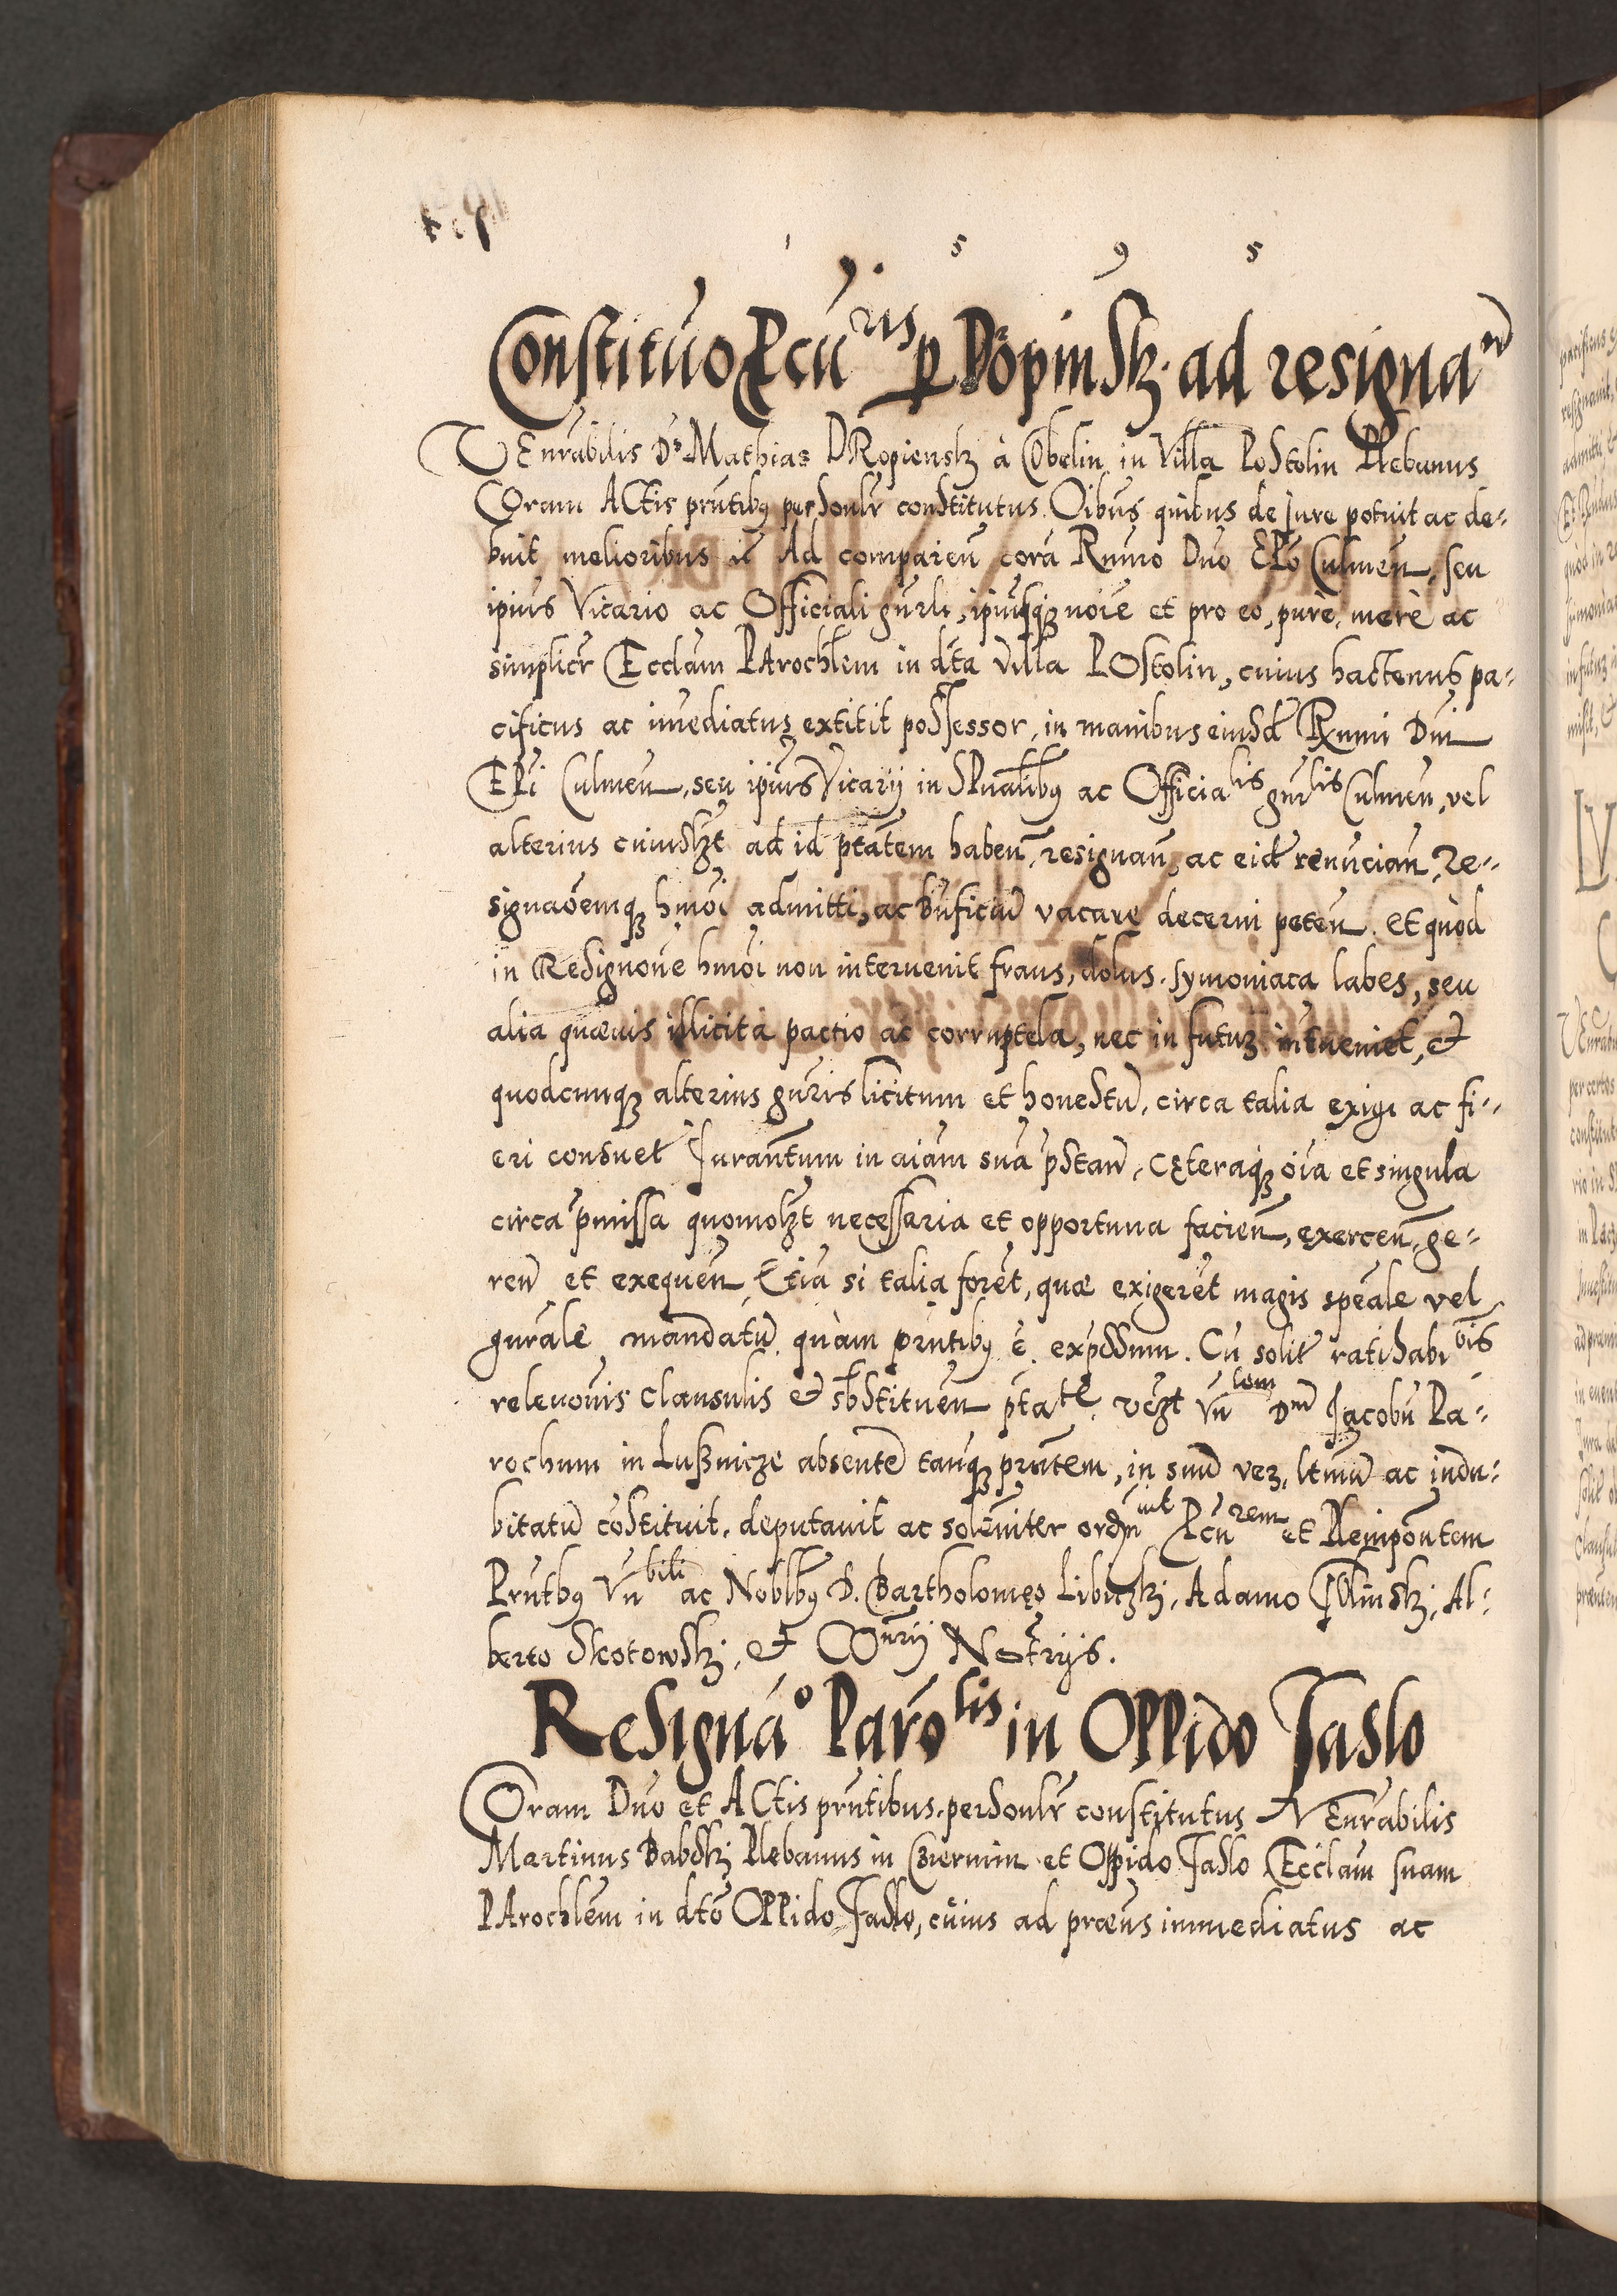 1 5 9 5
Constituõ Pcũris p Dropinskj ad resignan
VEnrabilis Ds Mathias DRopienskj à Obelin in Villa PoStolin Plebanus
COram ACtis prntibus personlr constitutus. Oibus quibus de Jure potuit ac de-
buit melioribus Ad comparen corã Rnmo Dno EPõ Culmen, seu
ipius Vicario ac Officiali gnrli, ipiusque noie et pro eo, purè, merè ac
simplicr Ecclam PArochlem in dta Villa POstolin, cuius hactenus pa-
cificus ac imediatus extitit possessor, in manibus eiusd Rnmi Dni
EPi Culmen, seu ipius Vicarij in SPualibus ac Officialis gnrlis Culmen, vel
alterius cuiuslzt ad id ptatem haben, resignan, ac eid renuncian, Re-
signaõemque hmõi admitti, ac bnficiũ vacare decerni peten. Et quòd
in ReSignone hmõi non interuenit fraus, dolus, symoniaca labes, seu
alia quæuis illicita pactio ac corruptela, nec in futuz intueniet, et
quodcunque alterius gnris licitum et honestũ, circa talia exigi ac fi-
eri consuet Juramtum in aiam suã pstan, Cęteraque oia et singula
circa pmissa quomolzt necessaria et opportuna facien, exercen, ge-
ren et exequen, Etiã si talia forent, quæ exigerẽt magis speale vel
gnrale mandatũ, quàm prntibus ẽ expssum. Cũ solit ratihabibis
releuonis clausulis et sbstituen ptate. Vezt Vnlem Dnm Jacobũ Pa-
rochum in Lusznicze absentẽ tanque prntem, in suũ vez, ltmũ ac indu-
bitatũ cõstituit, deputauit ac solẽniter ordnuit Pcũrem et Plenipontem
Prntbus Vnbili ac Noblbus D. Bartholomęo Libiczkj, Adamo Olinskj, Al-
berto Skotowskj, et COnrij Notrijs.
ReSignaõ Parõlis in OPPido Jaslo
COram Dno et ACtis prntibus personlr constitutus VEnrabilis
Martinus Babskj Plebanus in Czermin et Oppido Jaslo Ecclam suam
PArochlem in dto OPPido Jaslo, cuius ad præns immediatus ac